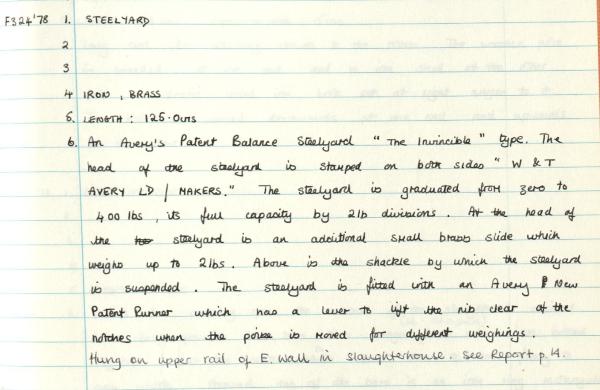 F324'78 1. STEELYARD
2
3
4 IRON, BRASS
5. LENGTH: 125.0cms
6. An Avery's Patent Balance Steelyard "The Invincible" type. The
head of the steelyard is stamped on both sides "W & T
AVERY LD / MAKERS." The steelyard is graduated from zero to
400 lbs, its full capacity by 2lb divisions. At the head of
the steelyard is an additional small brass slide which
weighs up to 2lbs. Above is the shackle by which the steelyard
is suspended. The steelyard is fitted with an Avery New
Patent Runner which has a lever to lift the nib clear of the
notches when the poise is moved for different weighings.
Hung on upper rail of E. wall in slaughterhouse. See Report p.14.